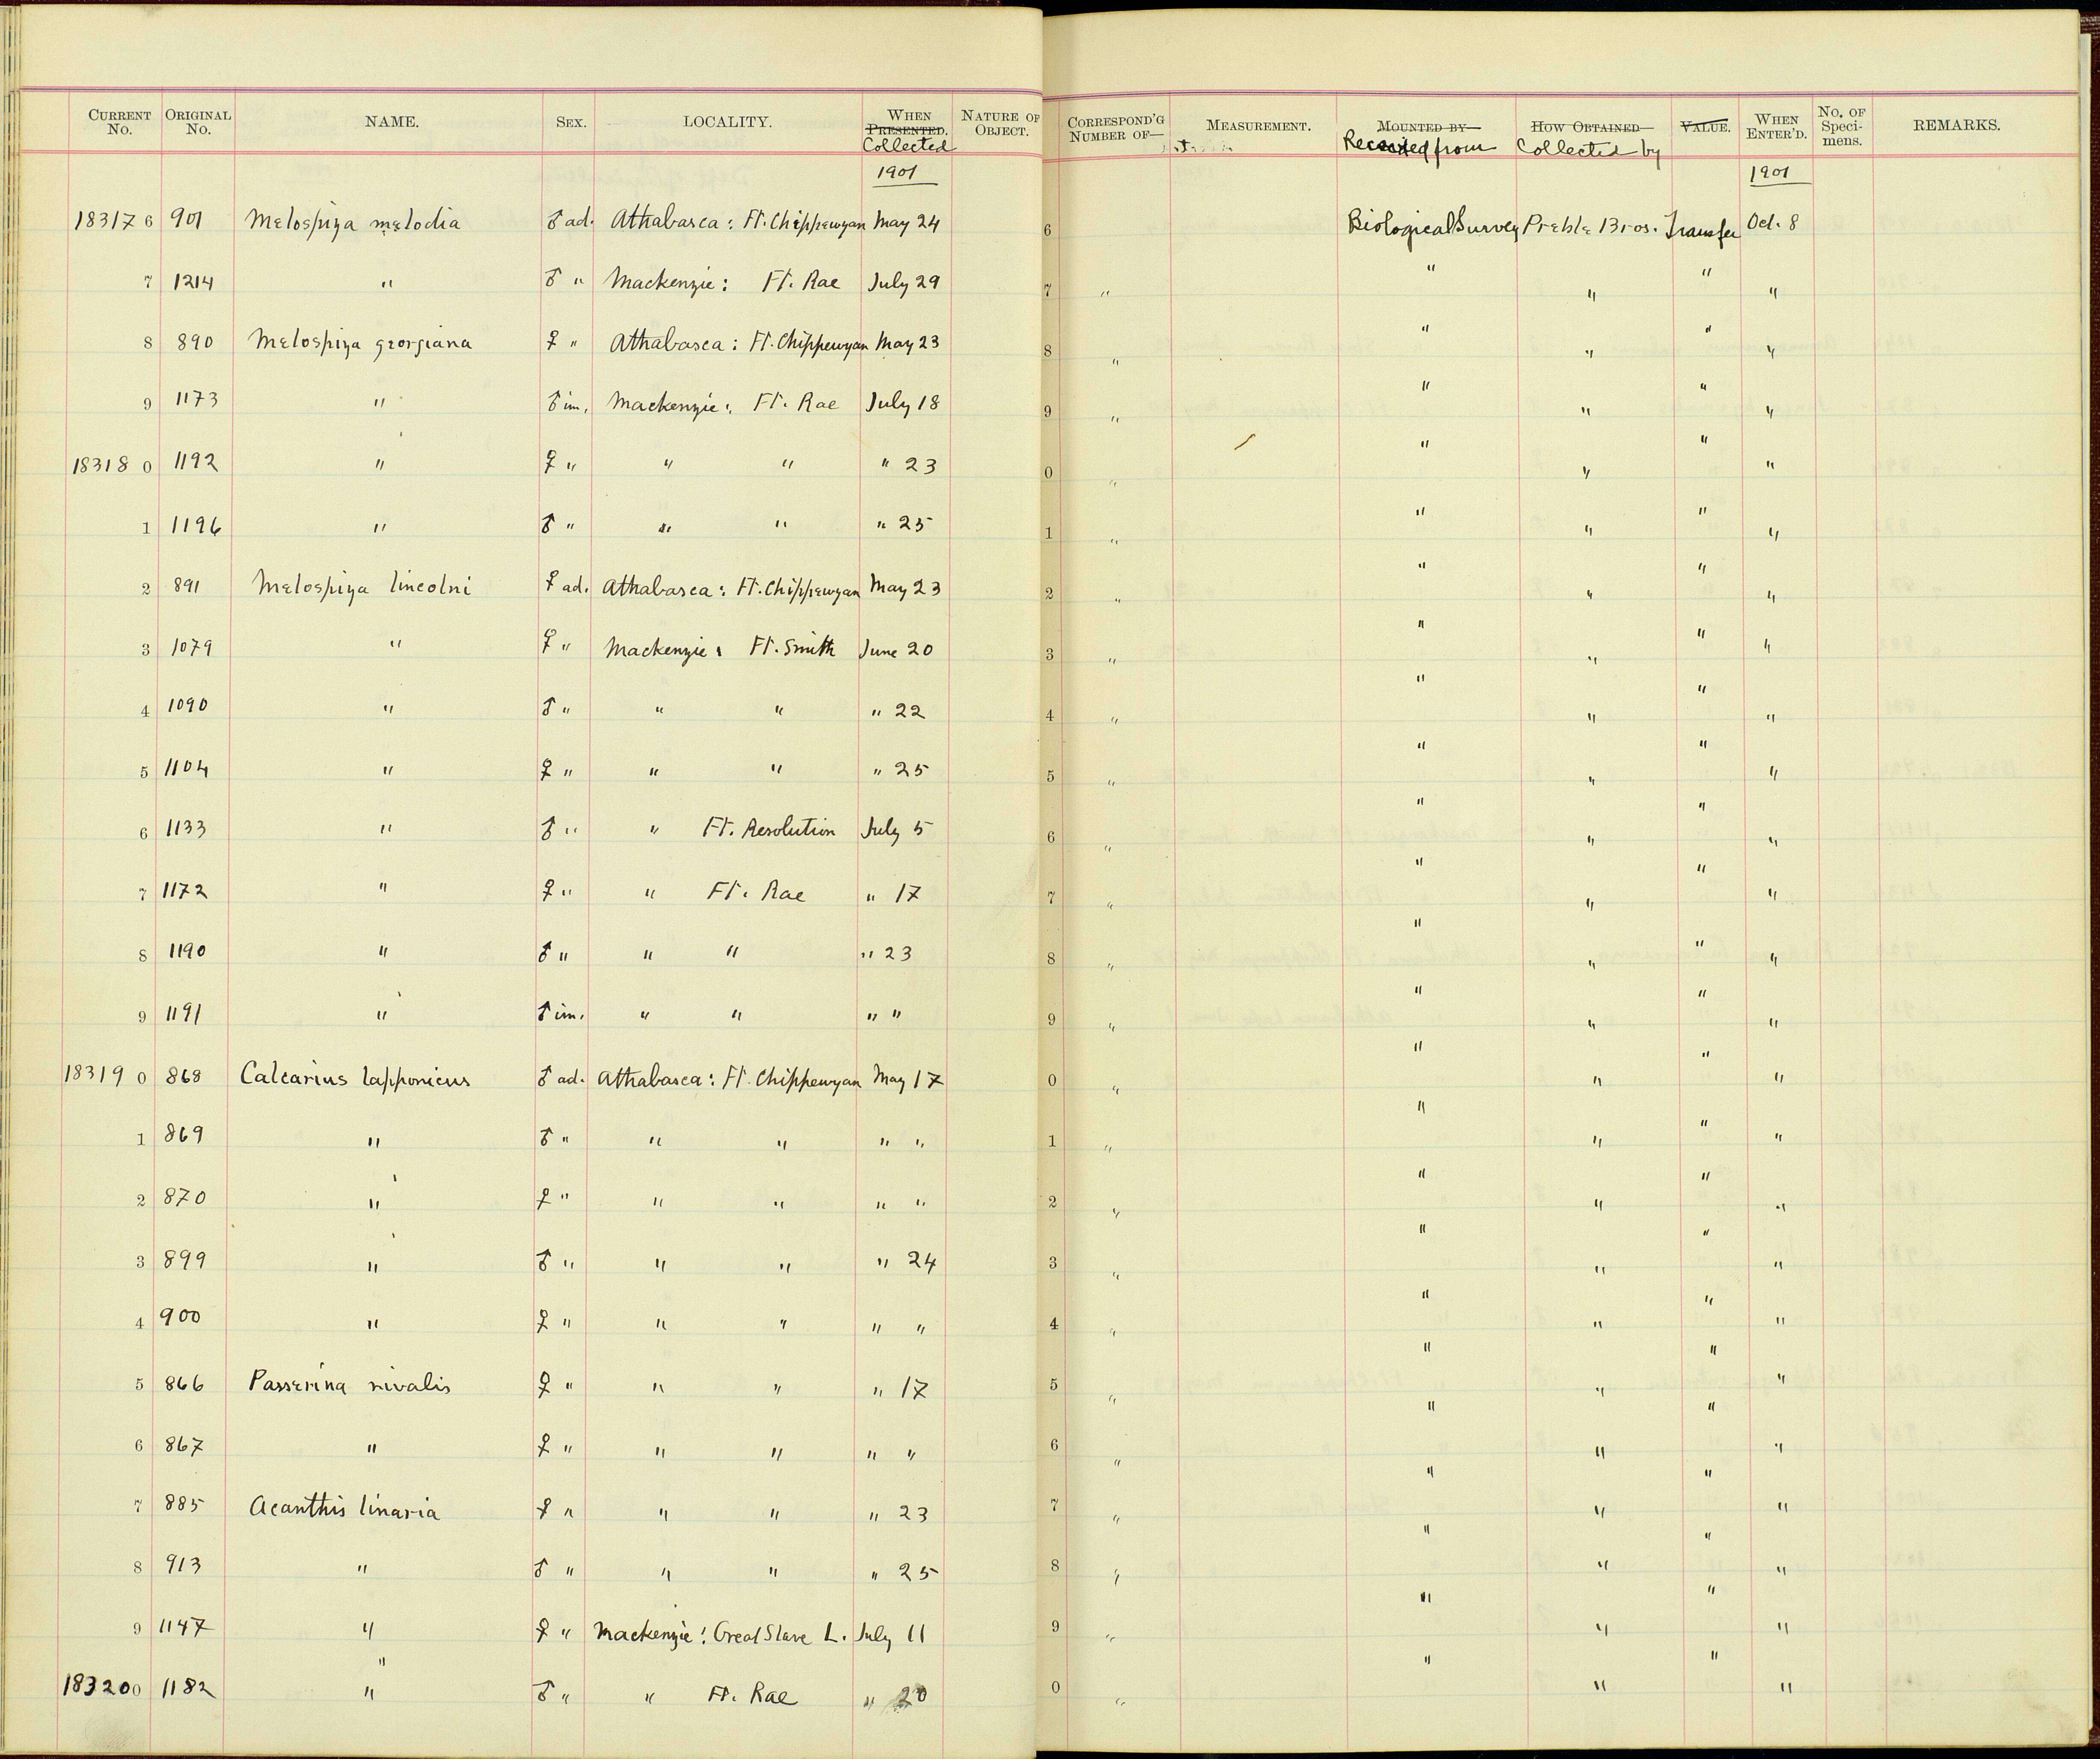 CURRENT No. ORIGINAL No. NAME. SEX. LOCALITY. WHEN PRESENTED. Collected NATURE OF OBJECT. CORRESPOND'G NUMBER OF— MEASUREMENT. MOUNTED BY— Received from HOW OBTAINED— Collected by VALUE. WHEN ENTER'D. No. OF Specimens. REMARKS.
1901 1901
18317 6 901 Melospiza melodia ♂ ad. Athabasca : Ft. Chippewyan May 24 6 Biological Survey Preble Bros. Transfer Oct. 8
7 1214 " ♂ " Mackenzie : Ft. Rae July 29 7 " " " " "
8 890 Melospiza georgiana ♀ " Athabasca : Ft. Chippewyan May 23 8 " " " " "
9 1173 " ♂ im. Mackenzie : Ft. Rae July 18 9 " " " " "
18318 0 1192 " ♀ " " " " 23 0 " " " " "
1 1196 " ♂ " " " " 25 1 " " " " "
2 891 Melospiza lincolni ♀ ad. Athabasca : Ft. Chippewyan May 23 2 " " " " "
3 1079 " ♀ " Mackenzie : Ft. Smith June 20 3 " " " " "
4 1090 " ♂ " " " " 22 4 " " " " "
5 1104 " ♀ " " " " 25 5 " " " " "
6 1133 " ♂ " " Ft. Resolution July 5 6 " " " " "
7 1172 " ♀ " " Ft. Rae " 17 7 " " " " "
8 1190 " ♂ " " " " 23 8 " " " " "
9 1191 " ♂ im. " " " " 9 " " " " "
18319 0 868 Calcarius lapponicus ♂ ad. Athabasca : Ft. Chippewyan May 17 0 " " " " "
1 869 " ♂ " " " " " 1 " " " " "
2 870 " ♀ " " " " " 2 " " " " "
3 899 " ♂ " " " " 24 3 " " " " "
4 900 " ♀ " " " " " 4 " " " " "
5 866 Passerina nivalis ♀ " " " " 17 5 " " " " "
6 867 " ♀ " " " " " 6 " " " " "
7 885 Acanthis linaria ♀ " " " " 23 7 " " " " "
8 913 " ♂ " " " " 25 8 " " " " "
9 1147 " ♀ " Mackenzie : Great Slave L. July 11 9 " " " " "
18320 0 1182 " ♂ " " Ft. Rae " 20 0 " " " " "